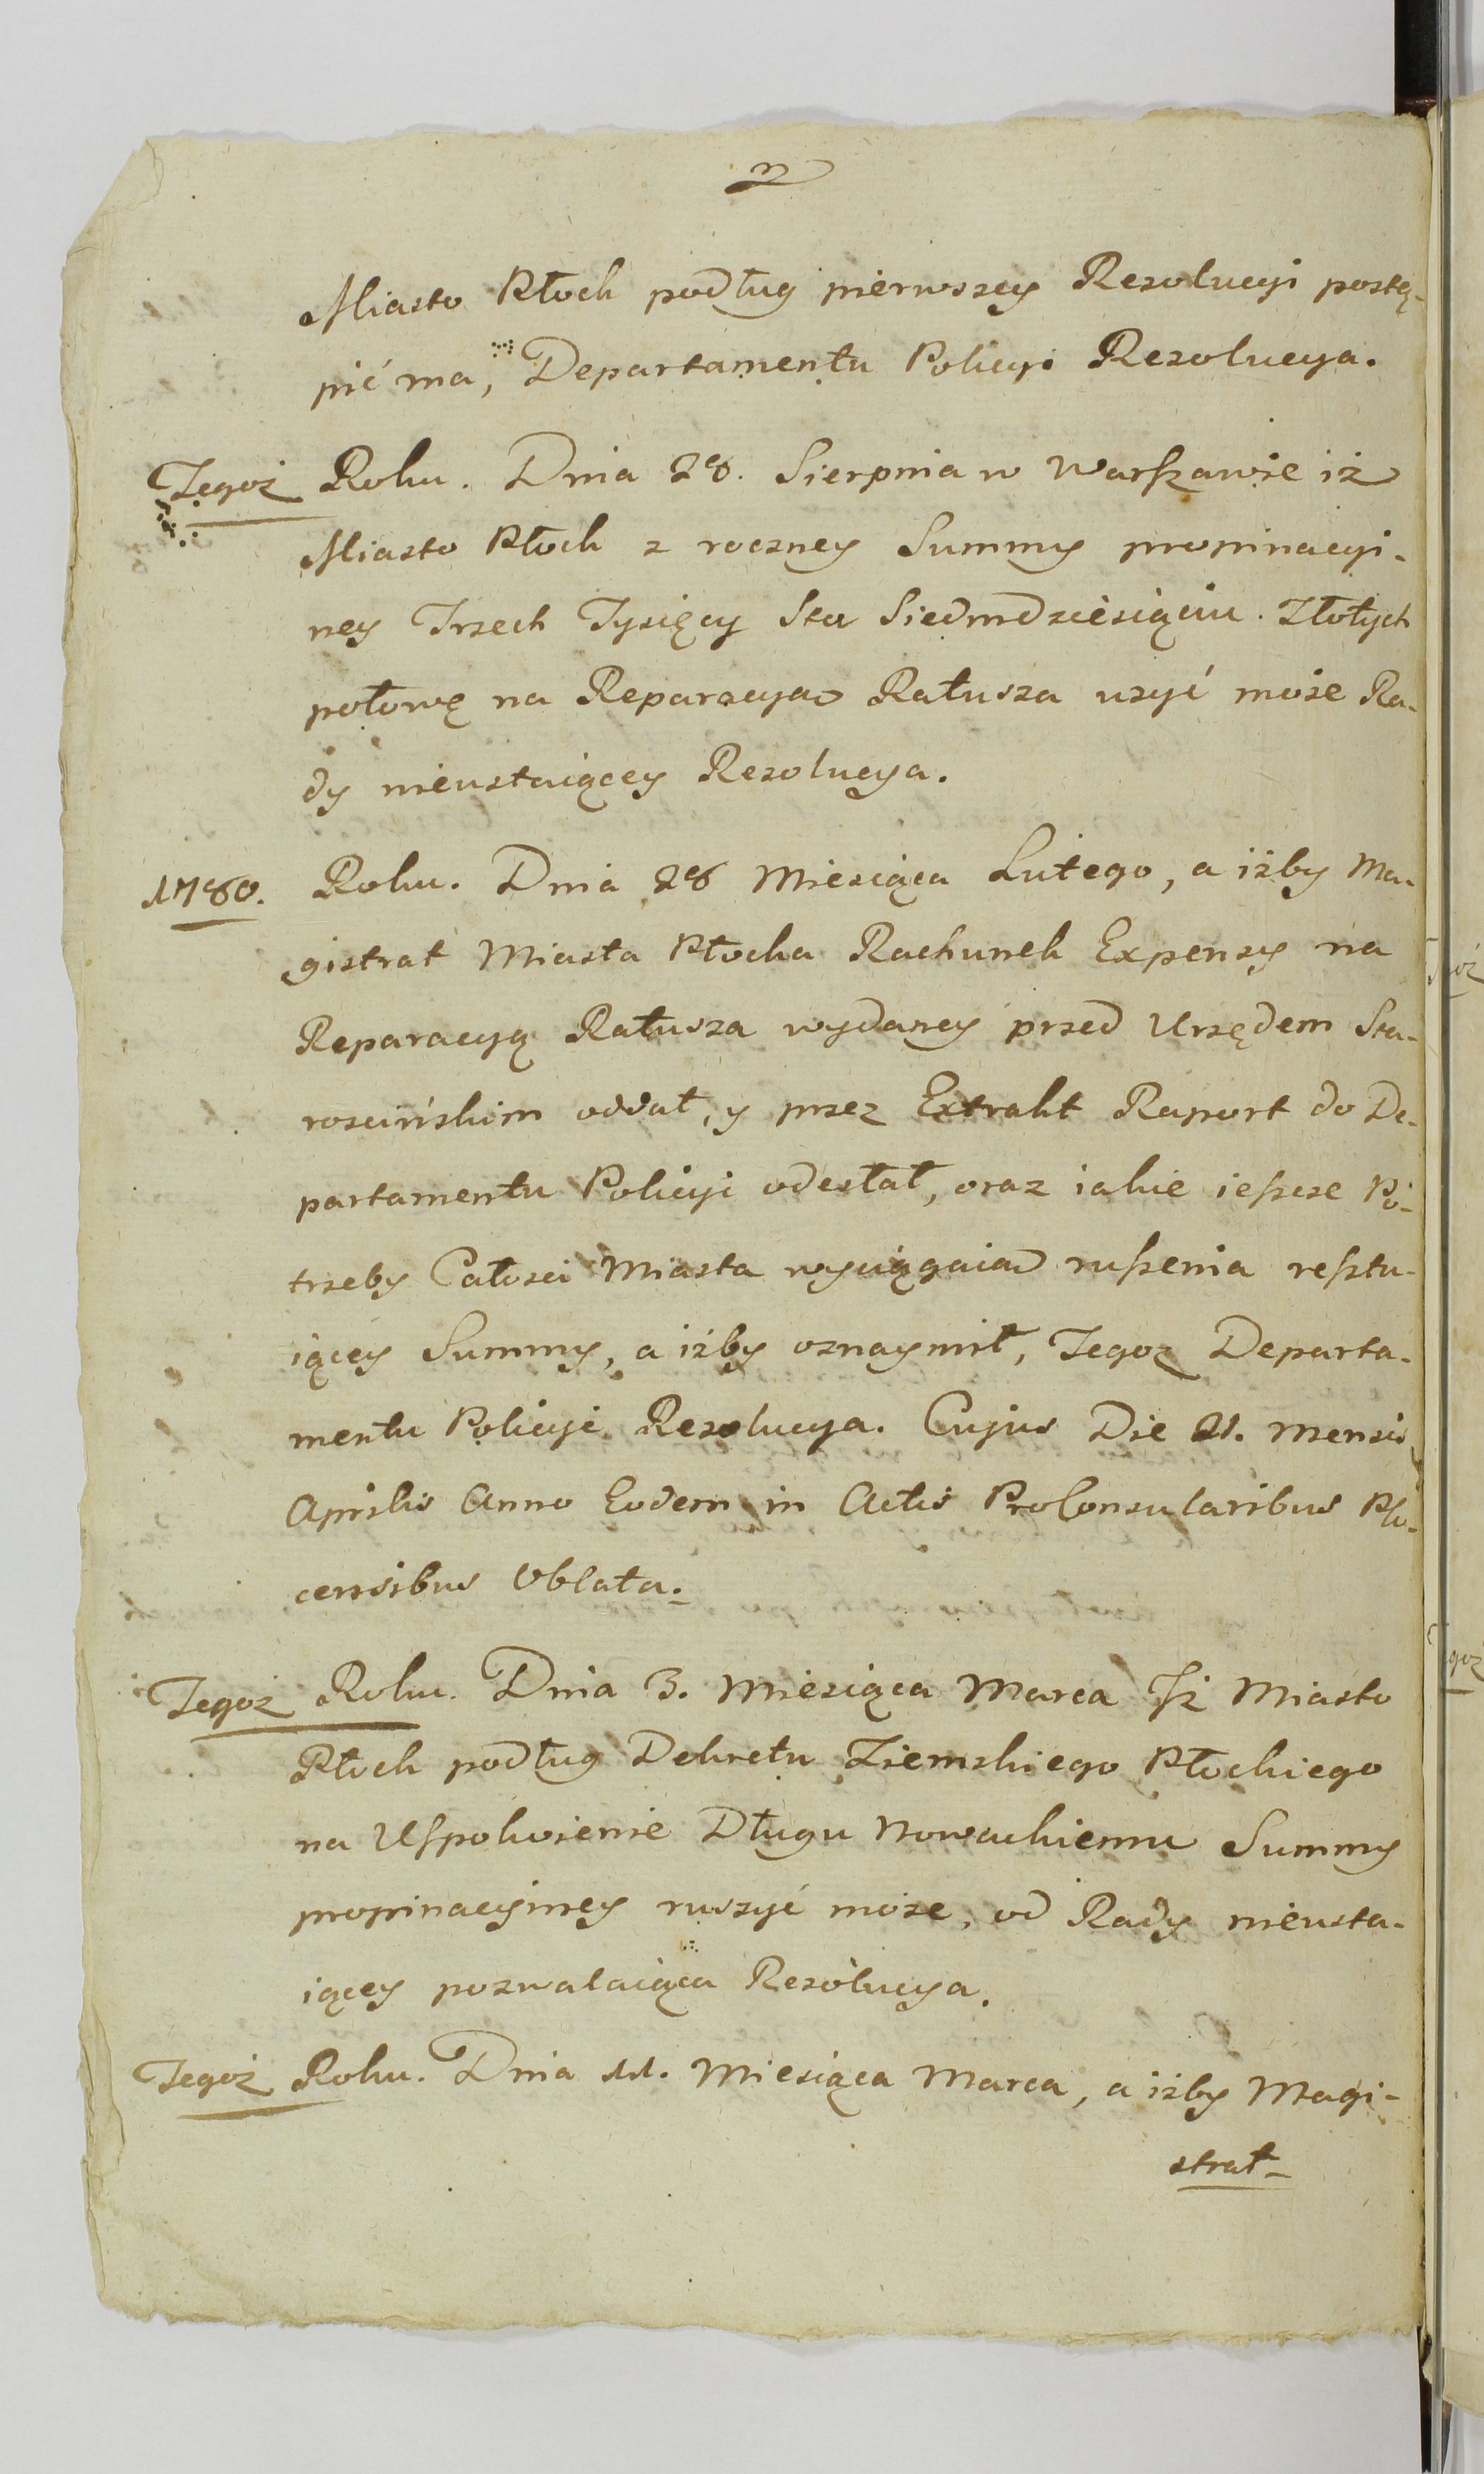 Miasto Płock podług pierwszey Rezolucyi postę-
pić ma, Departamentu Policyi Rezolucya.
Tegoż Roku. Dnia 28. Sierpnia w Warszawie iż
Miasto Płock z roczney Summy propinacyi-
ney Trzech Tysięcy Sta Siedmdziesiąciu. Złotych
połowę na Reparacyą Ratusza użyć może Ra-
dy nieustaiącey Rezolucya.
1780. Roku. Dnia 28 Miesiąca Lutego, a iżby Ma-
gistrat Miasta Płocka Rachunek Expensy na
Reparacyą Ratusza wydaney przed Urzędem Sta-
rościńskim oddał, y przez Extrakt Raport do De-
partamentu Policyi odesłał, oraz iakie ieszcze Po-
trzeby Całości Miasta wyciągaią ruszenia resztu-
iącey Summy, a iżby oznaymił, Tegoż Departa-
mentu Policyi Rezolucya. Cujus Die 21. Mensis
Aprilis Anno Eodem in Actis ProConsularibus Plo-
censibus Oblata.
Tegoż Roku. Dnia 3. Miesiąca Marca Iż Miasto
Płock podług Dekretu Ziemskiego Płockiego
na Uspokoienie Długu Nowackiemu Summy
propinacyiney ruszyć może, od Rady nieusta-
iącey pozwalaiąca Rezolucya.
Tegoż Roku. Dnia 11. Miesiąca Marca, a iżby Magi-
strat